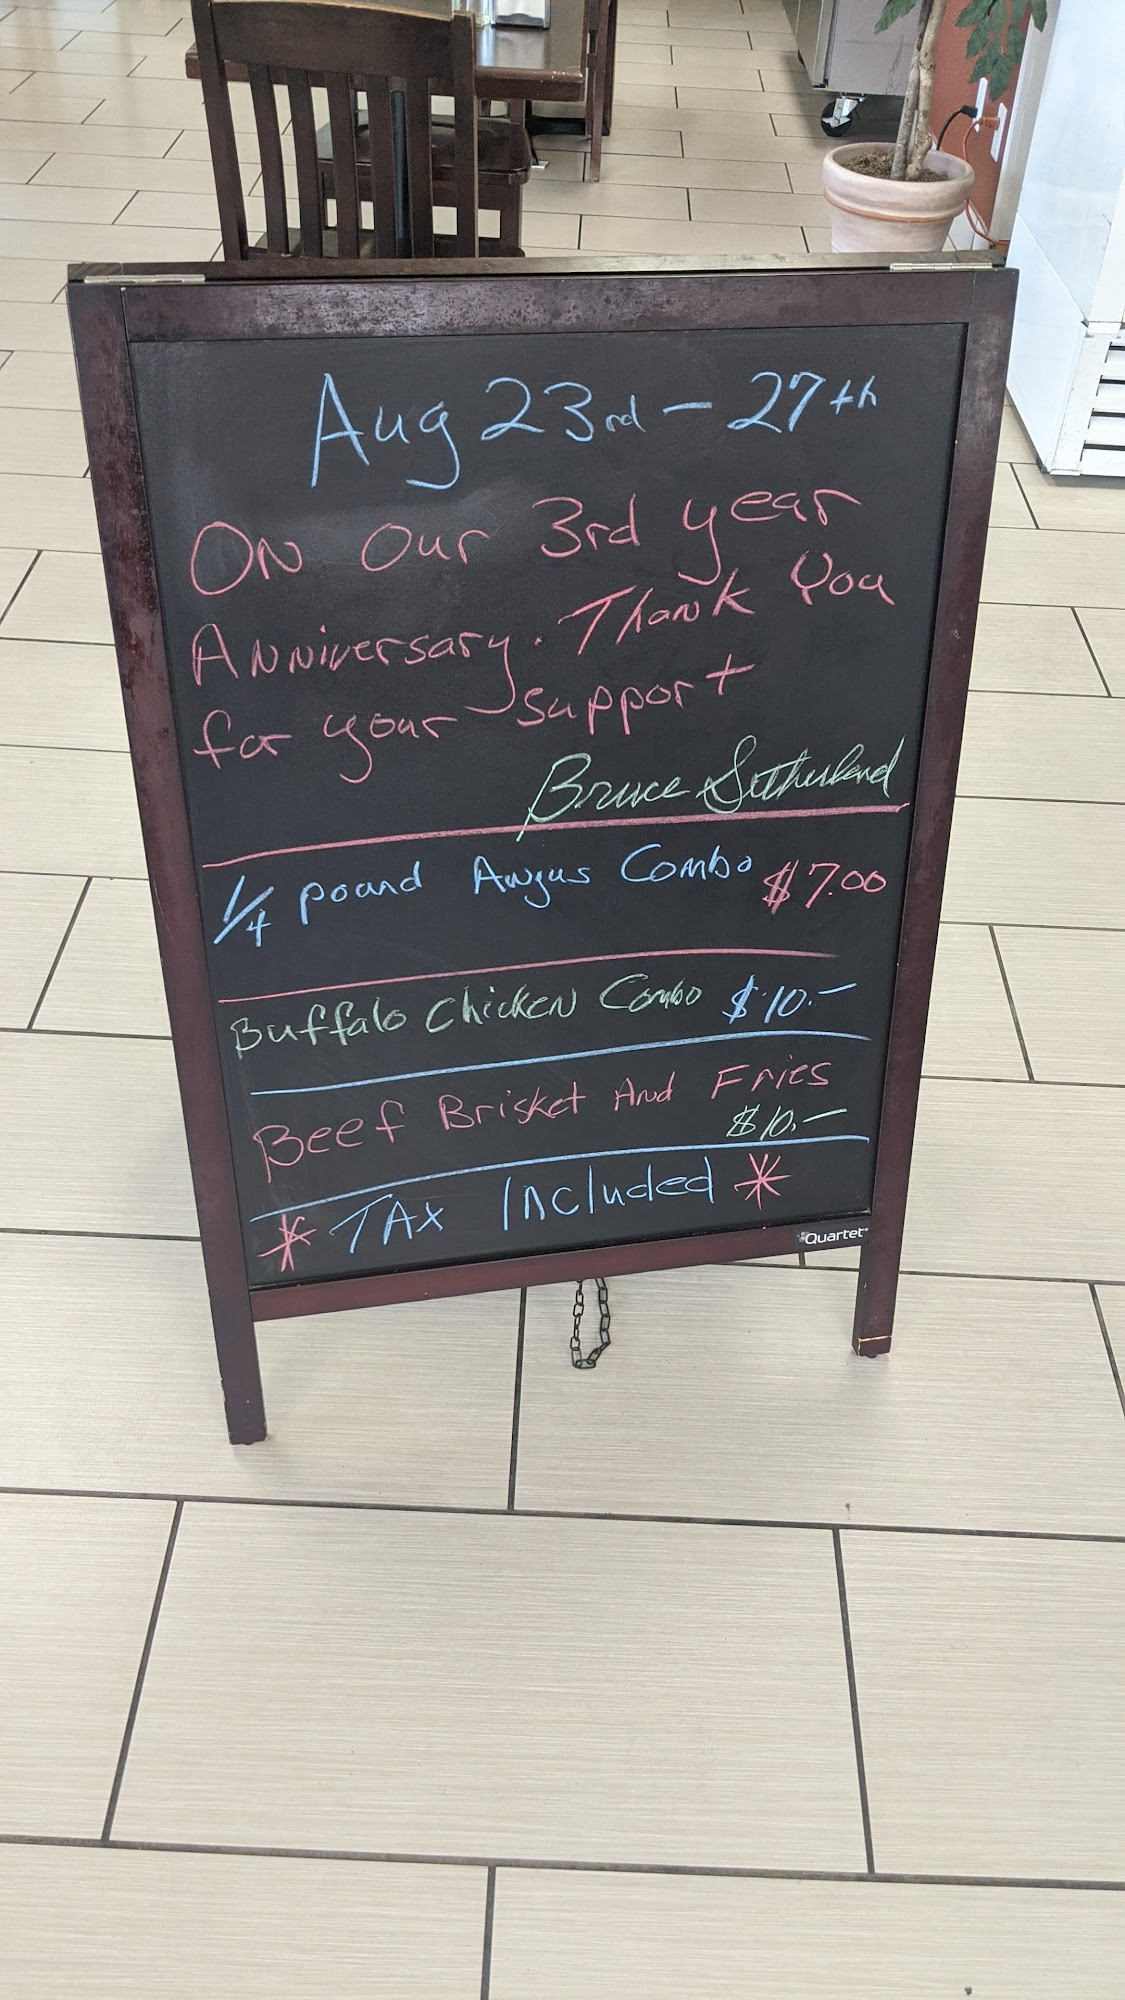 Aug 23rd - 27th
On Our 3rd year
Anniversary. Thank You
for your support
Bruce Sutherland
1/4 pound Angus Combo $7.00
Buffalo Chicken Combo $10.-
Beef Brisket And Fries
$10.-
* TAX Included *
Quartet